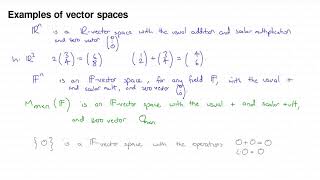 Examples of vector spaces
ℝⁿ is a ℝ-vector space with the usual addition and scalar multiplication
and zero vector (0 ⋮ 0)
In ℝ² 2(3 4) = (6 8) (1 2) + (3 4) = (4 6)
𝔽ⁿ is an 𝔽-vector space, for any field 𝔽, with the usual +
and scalar mult, and zero vector (0 ⋮ 0)
M_{m×n}(𝔽) is an 𝔽-vector space with the usual + and scalar mult,
and zero vector 0_{m×n}
{0} is a 𝔽-vector space with the operations 0+0=0
λ·0=0